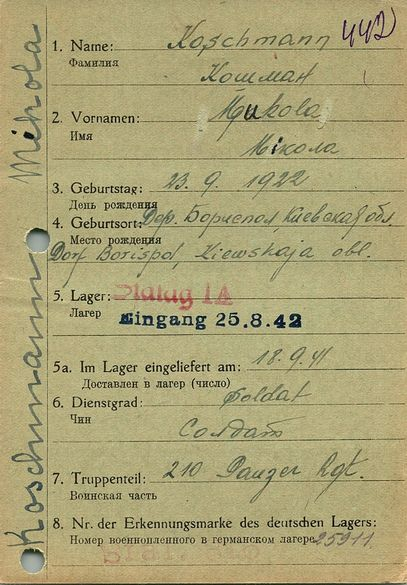 442
1. Name: Koschmann
Фамилия
Кошман
2. Vornamen: Mukola
Имя
Мікола
3. Geburtstag: 23. 9. 1922
День рождения
4. Geburtsort: Дер. Бориспол, Киевская обл.
Место рождения
Dorf Borispol, Kiewskaja obl.
5. Lager: Stalag IA
Лагер
Eingang 25.8.42
5a. Im Lager eingeliefert am: 18.9.41
Доставлен в лагер (число)
6. Dienstgrad: Soldat
Чин
Солдат
7. Truppenteil: 210 Panzer Rgt.
Воинская часть
8. Nr. der Erkennungsmarke des deutschen Lagers:
Номер военнопленного в германском лагере 25911
Koschmann Mikola